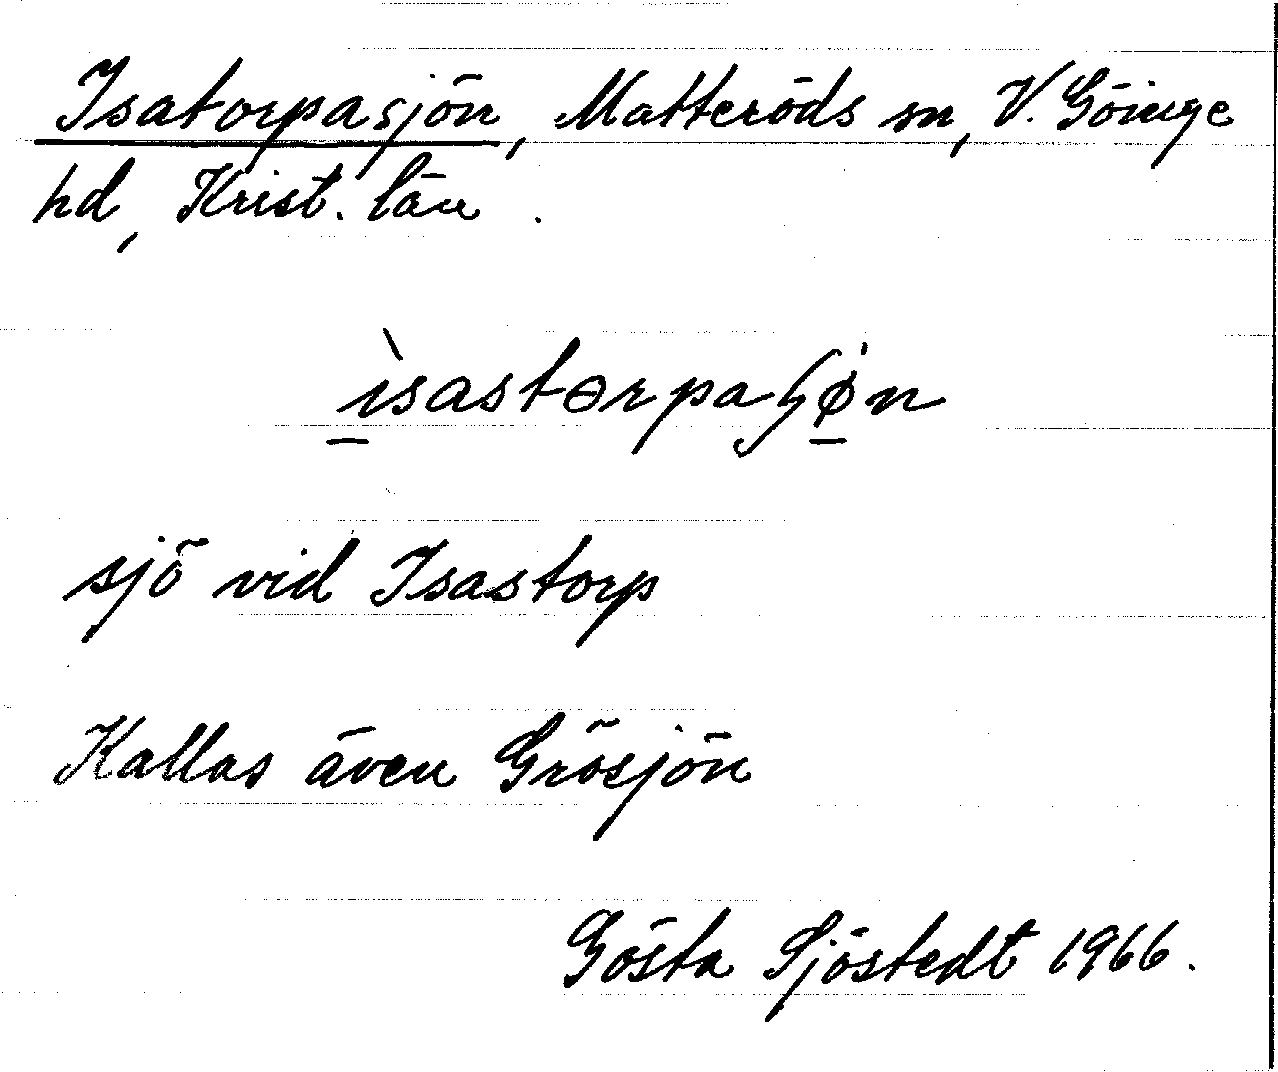 Isatorpasjön, Matteröds sn, V. Göinge
hd, Krist. län.
ìsastɵrpaʃø̀n
sjö vid Isastorp
Kallas även Grösjön
Gösta Sjöstedt 1966.